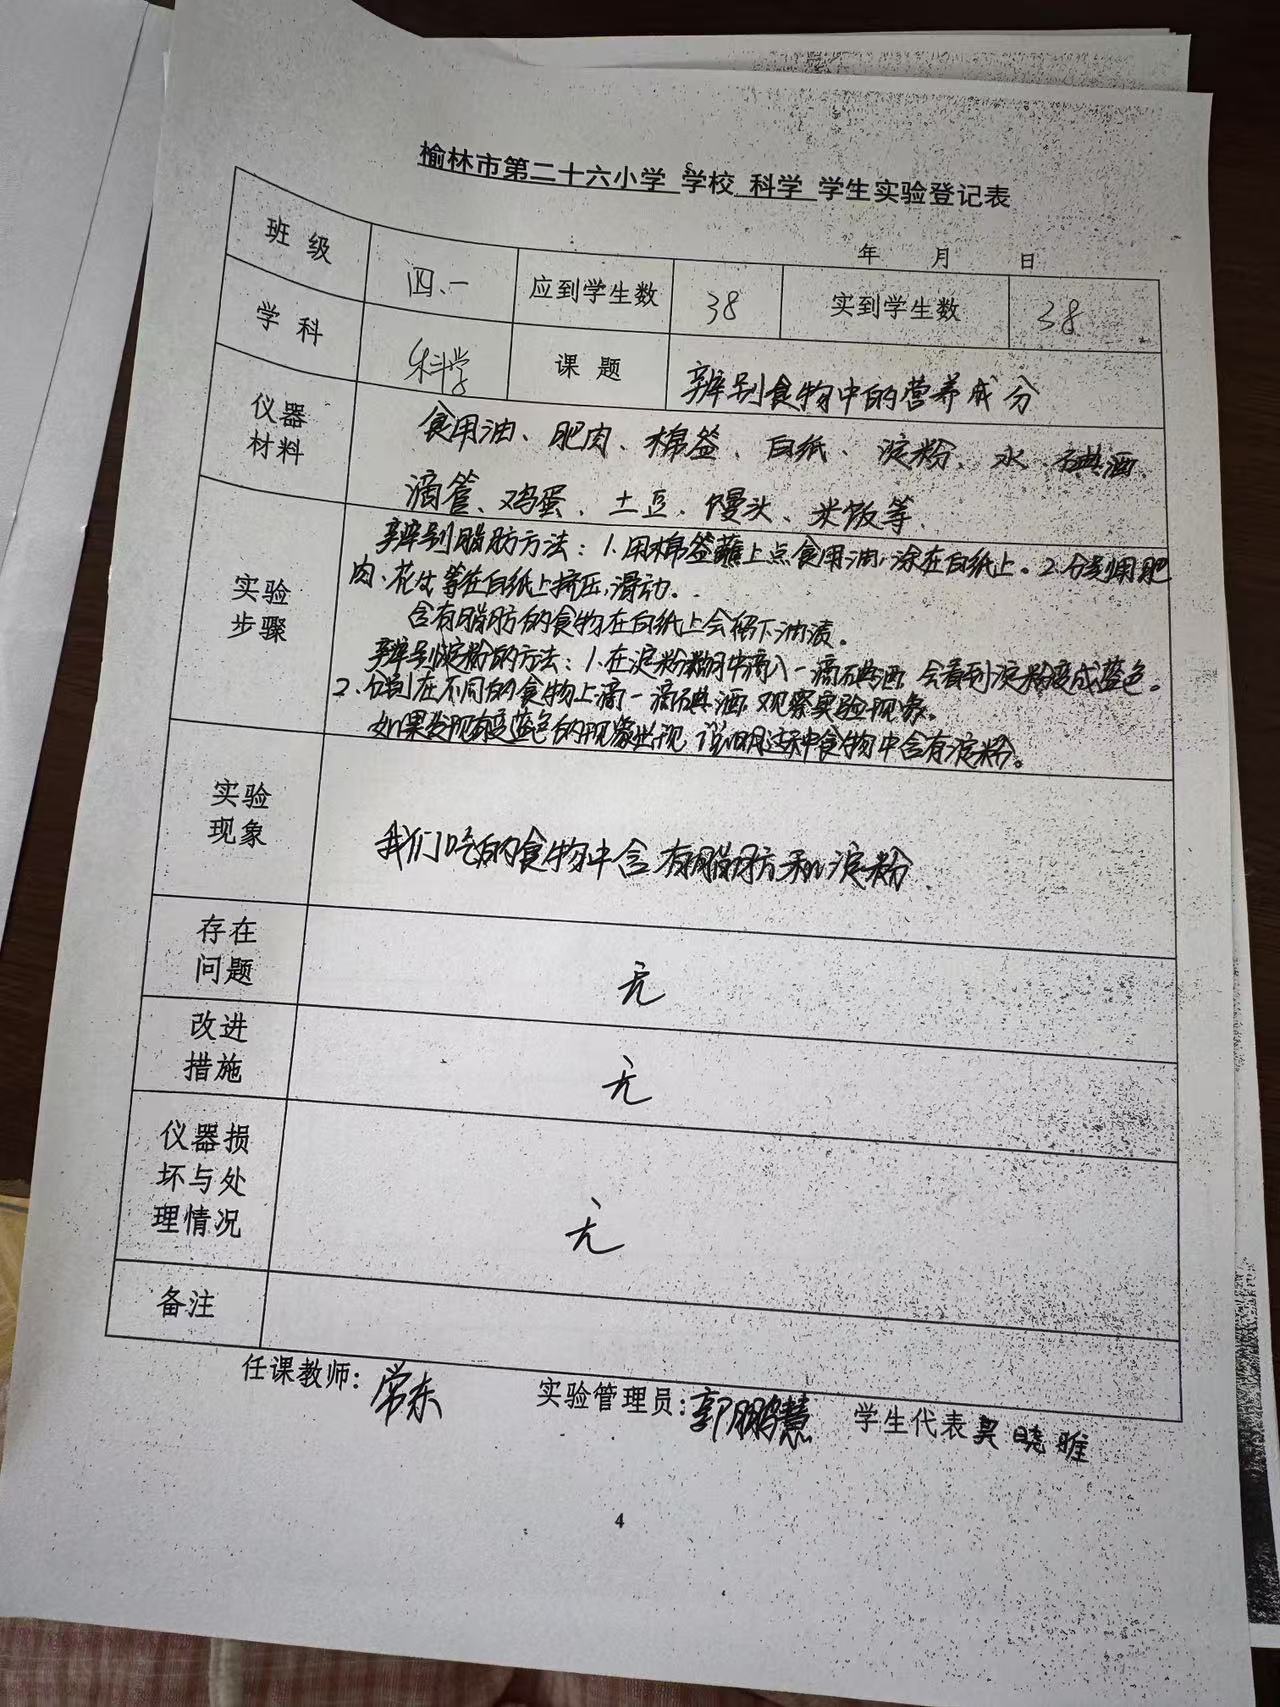 榆林市第二十六小学 学校 科学 学生实验登记表
年 月 日
班 级 四、一 应到学生数 38 实到学生数 38
学 科 科学 课 题 辨别食物中的营养成分
仪器
材料
食用油、肥肉、棉签、白纸、淀粉、水、碘酒
滴管、鸡蛋、土豆、馒头、米饭等.
实验
步骤
辨别脂肪方法：1.用棉签蘸上点食用油,涂在白纸上。2.分别用肥
肉、花生等在白纸上挤压,滑动.
含有脂肪的食物在白纸上会留下油渍。
辨别淀粉的方法：1.在淀粉糊中滴入一滴碘酒,会看到淀粉变成蓝色。
2.分别在不同的食物上滴一滴碘酒,观察实验现象。
如果发现有变蓝色的现象出现,说明这种食物中含有淀粉。
实验
现象
我们吃的食物中含有脂肪和淀粉
存在
问题
无
改进
措施
无
仪器损
坏与处
理情况
无
备注
任课教师：常东 实验管理员：郭鹏慧 学生代表 吴晓睢
4